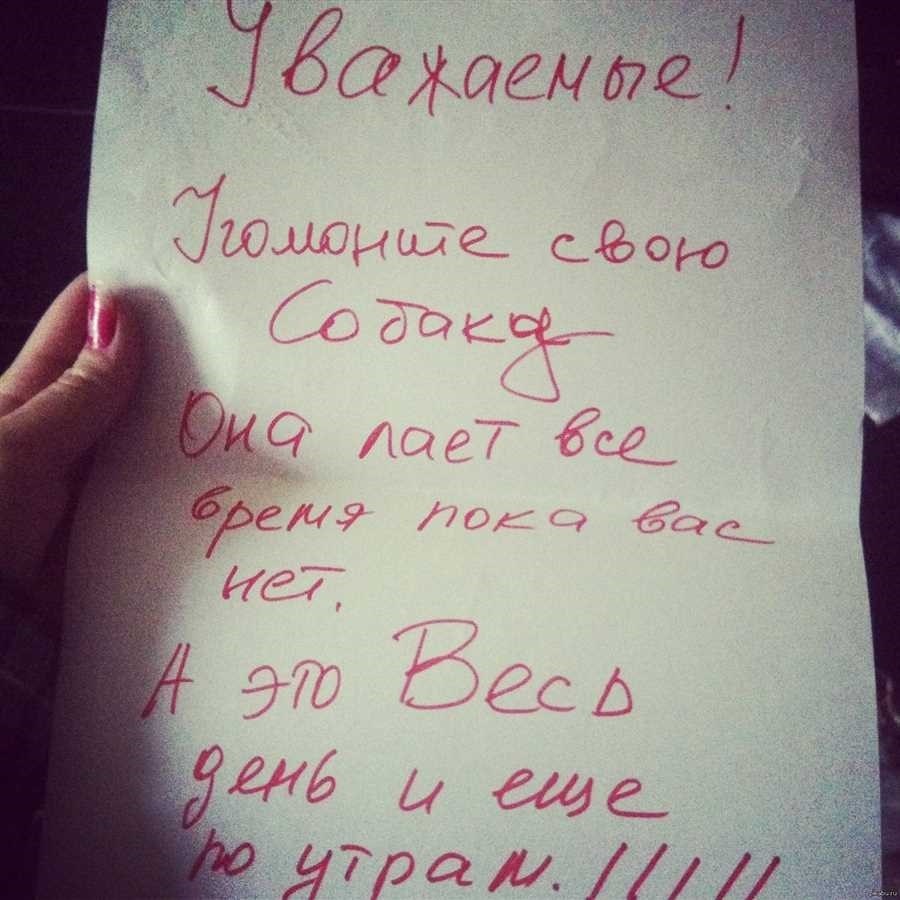 Уважаемые!
Угомоните свою
Собаку
Она лает все
время пока вас
нет.
А это Весь
день и еще
по утрам. !!!!!
pikabu.ru